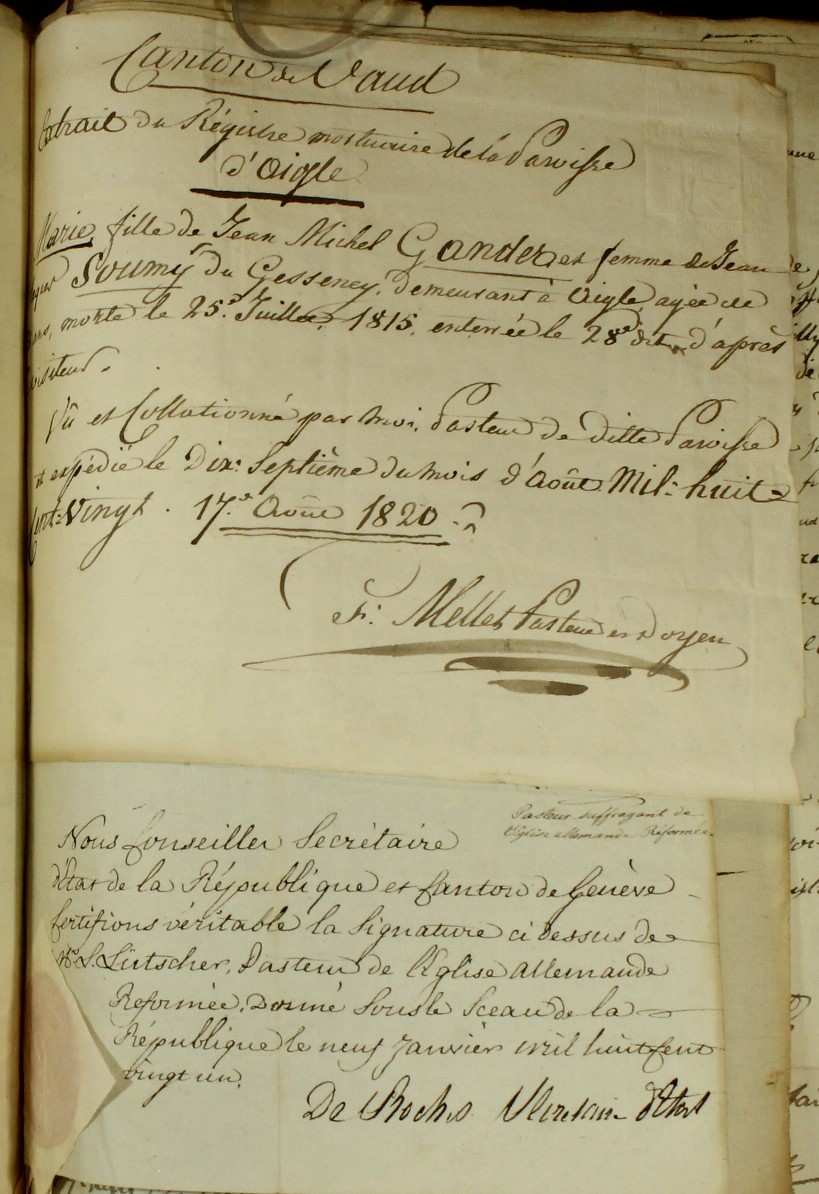 Canton de Vaud
Extrait du Régistre mortuaire de la Paroisse
d'Aigle
Marie, fille de Jean Michel Gander et femme de Jean
Soumÿ du Gesseney, demeurant à Aigle agée de
ans, morte le 25.e Juillet 1815, enterrée le 28e dit d'après
visiteur.
Vû et Collationné par moi, Pasteur de ditte Paroisse
et expédié le Dix: Septième du mois d'Août Mil: huit
Cent: Vingt. 17.e Août 1820.
F: Mellet Pasteur et Doyen
Pasteur suffragant de
l'Eglise allemande Reformée.
Nous Conseiller Secrétaire
d'Etat de la République et Canton de Genève
Certifions véritable la Signature ci dessus de
Mr. S. Lütscher, Pasteur de l'Eglise Allemande
Reformée. Donné sous le Sceau de la
République le neuf Janvier mil huit cent
vingt un.
De Roches d'Etat